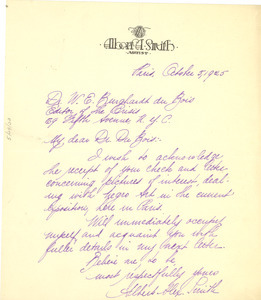 Albert A Smith
ARTIST
Paris, October 5, 1925
Dr W. E. Burghardt du Bois
Editor of The Crisis
69 Fifth Avenue N.Y.C
My dear Dr Du Bois:
I wish to acknowledge
the receipt of your check and letter
concerning pictures of interest deal-
ing with Negro Art in the current
exposition, here in Paris.
Will immediately occupy
myself and acquaint you with
fuller details in my next letter.
Believe me to be
most respectfully yours
Albert Alex Smith